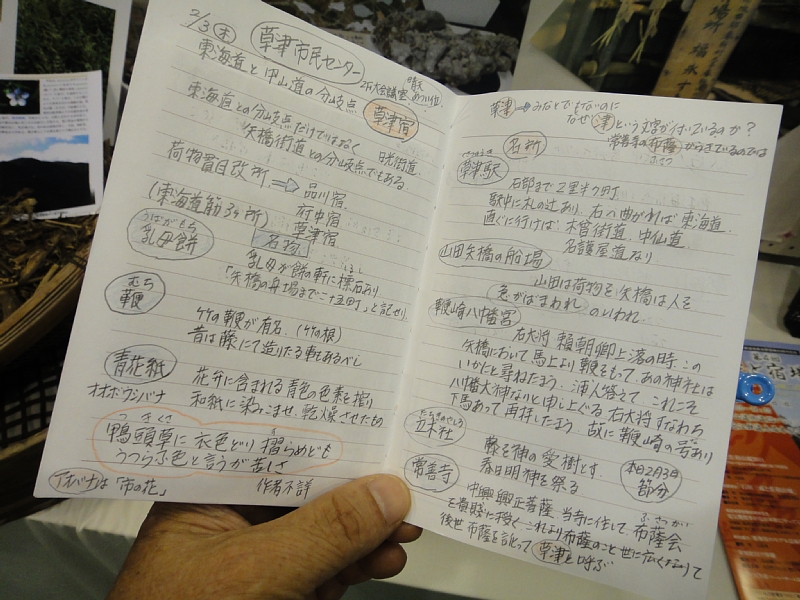 2/3(木) 草津市民センター
2F大会議室
東海道と中山道の分岐点
草津宿
東海道との分岐点だけではなく 日光街道
矢橋街道との分岐点でもある
荷物貫目改所 ⇒ 品川宿
府中宿
(東海道筋3ヶ所) 草津宿
うばがもち
乳母餅 名物
乳母が餅の軒に標石あり
「矢橋の舟場まで二十五町」と記せり
むち
鞭
竹の鞭が有名. (竹の根)
昔は藤にて造りたる軒もあるべし
青花紙
オオボウシバナ
花弁に含まれる青色の色素を摺り
和紙に染みこませ、乾燥させたもの
つきくさ
鴨頭草に 衣色どり 摺らめども
うつらふ色と 言うが苦しさ
アオバナは「市の花」 作者不詳
草津 → みなとでもないのに
なぜ 津 という文字が付いているのか?
常善寺の布薩がうきているのでは
名所
草津駅
石部まで2里半7町
駅中に札の辻あり 右へ曲がれば東海道.
直ぐに行けば、木曽街道、中仙道.
名護屋道なり
山田矢橋の船場
山田は荷物を 矢橋は人を
急がばまわれ のいわれ
鞭崎八幡宮
右大将 頼朝卿上洛の時、この
矢橋において馬上より鞭をもって、あの神社は
いかたと尋ねたまう. 浦人答えて これこそ
八幡大神なりと申し上ぐる 右大将 すなわち
下馬あって再拝したまう. 故に鞭崎の号あり
立木社
藤を神の愛樹とす.
春日明神を祭る
本日2月3日
節分
常善寺
ふさつかい
中興 興正菩薩 当寺に住して 布薩会
を貴賤に授く これより布薩のこと 世に広くなりて
後世 布薩を訛って 草津と呼ぶ